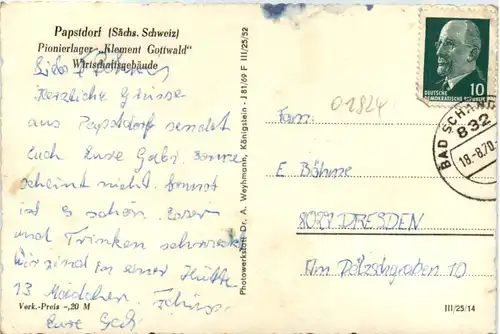 Papstdorf (Sächs. Schweiz)
Pionierlager „Klement Gottwald"
Wirtschaftsgebäude
Herzliche Grüsse
aus Papstdorf sendet
Euch Eure Gabi. Sonne
scheint nicht. Sonst
ist es schön. Essen
und Trinken schmeckt
Wir sind in einer Hütte
13 Mädchen. Tschüss
Eure Gabi
Verk.-Preis -,20 M
Photowerkstatt Dr. A. Weyhmann, Königstein - J 81/69 F III/25/52
01824
10
DEUTSCHE
DEMOKRATISCHE REPUBLIK
BAD SCHAND
832
18.-8.70.
Fam.
E Böhme
8027 DRESDEN
Am Dölzschgraben 10
III/25/14